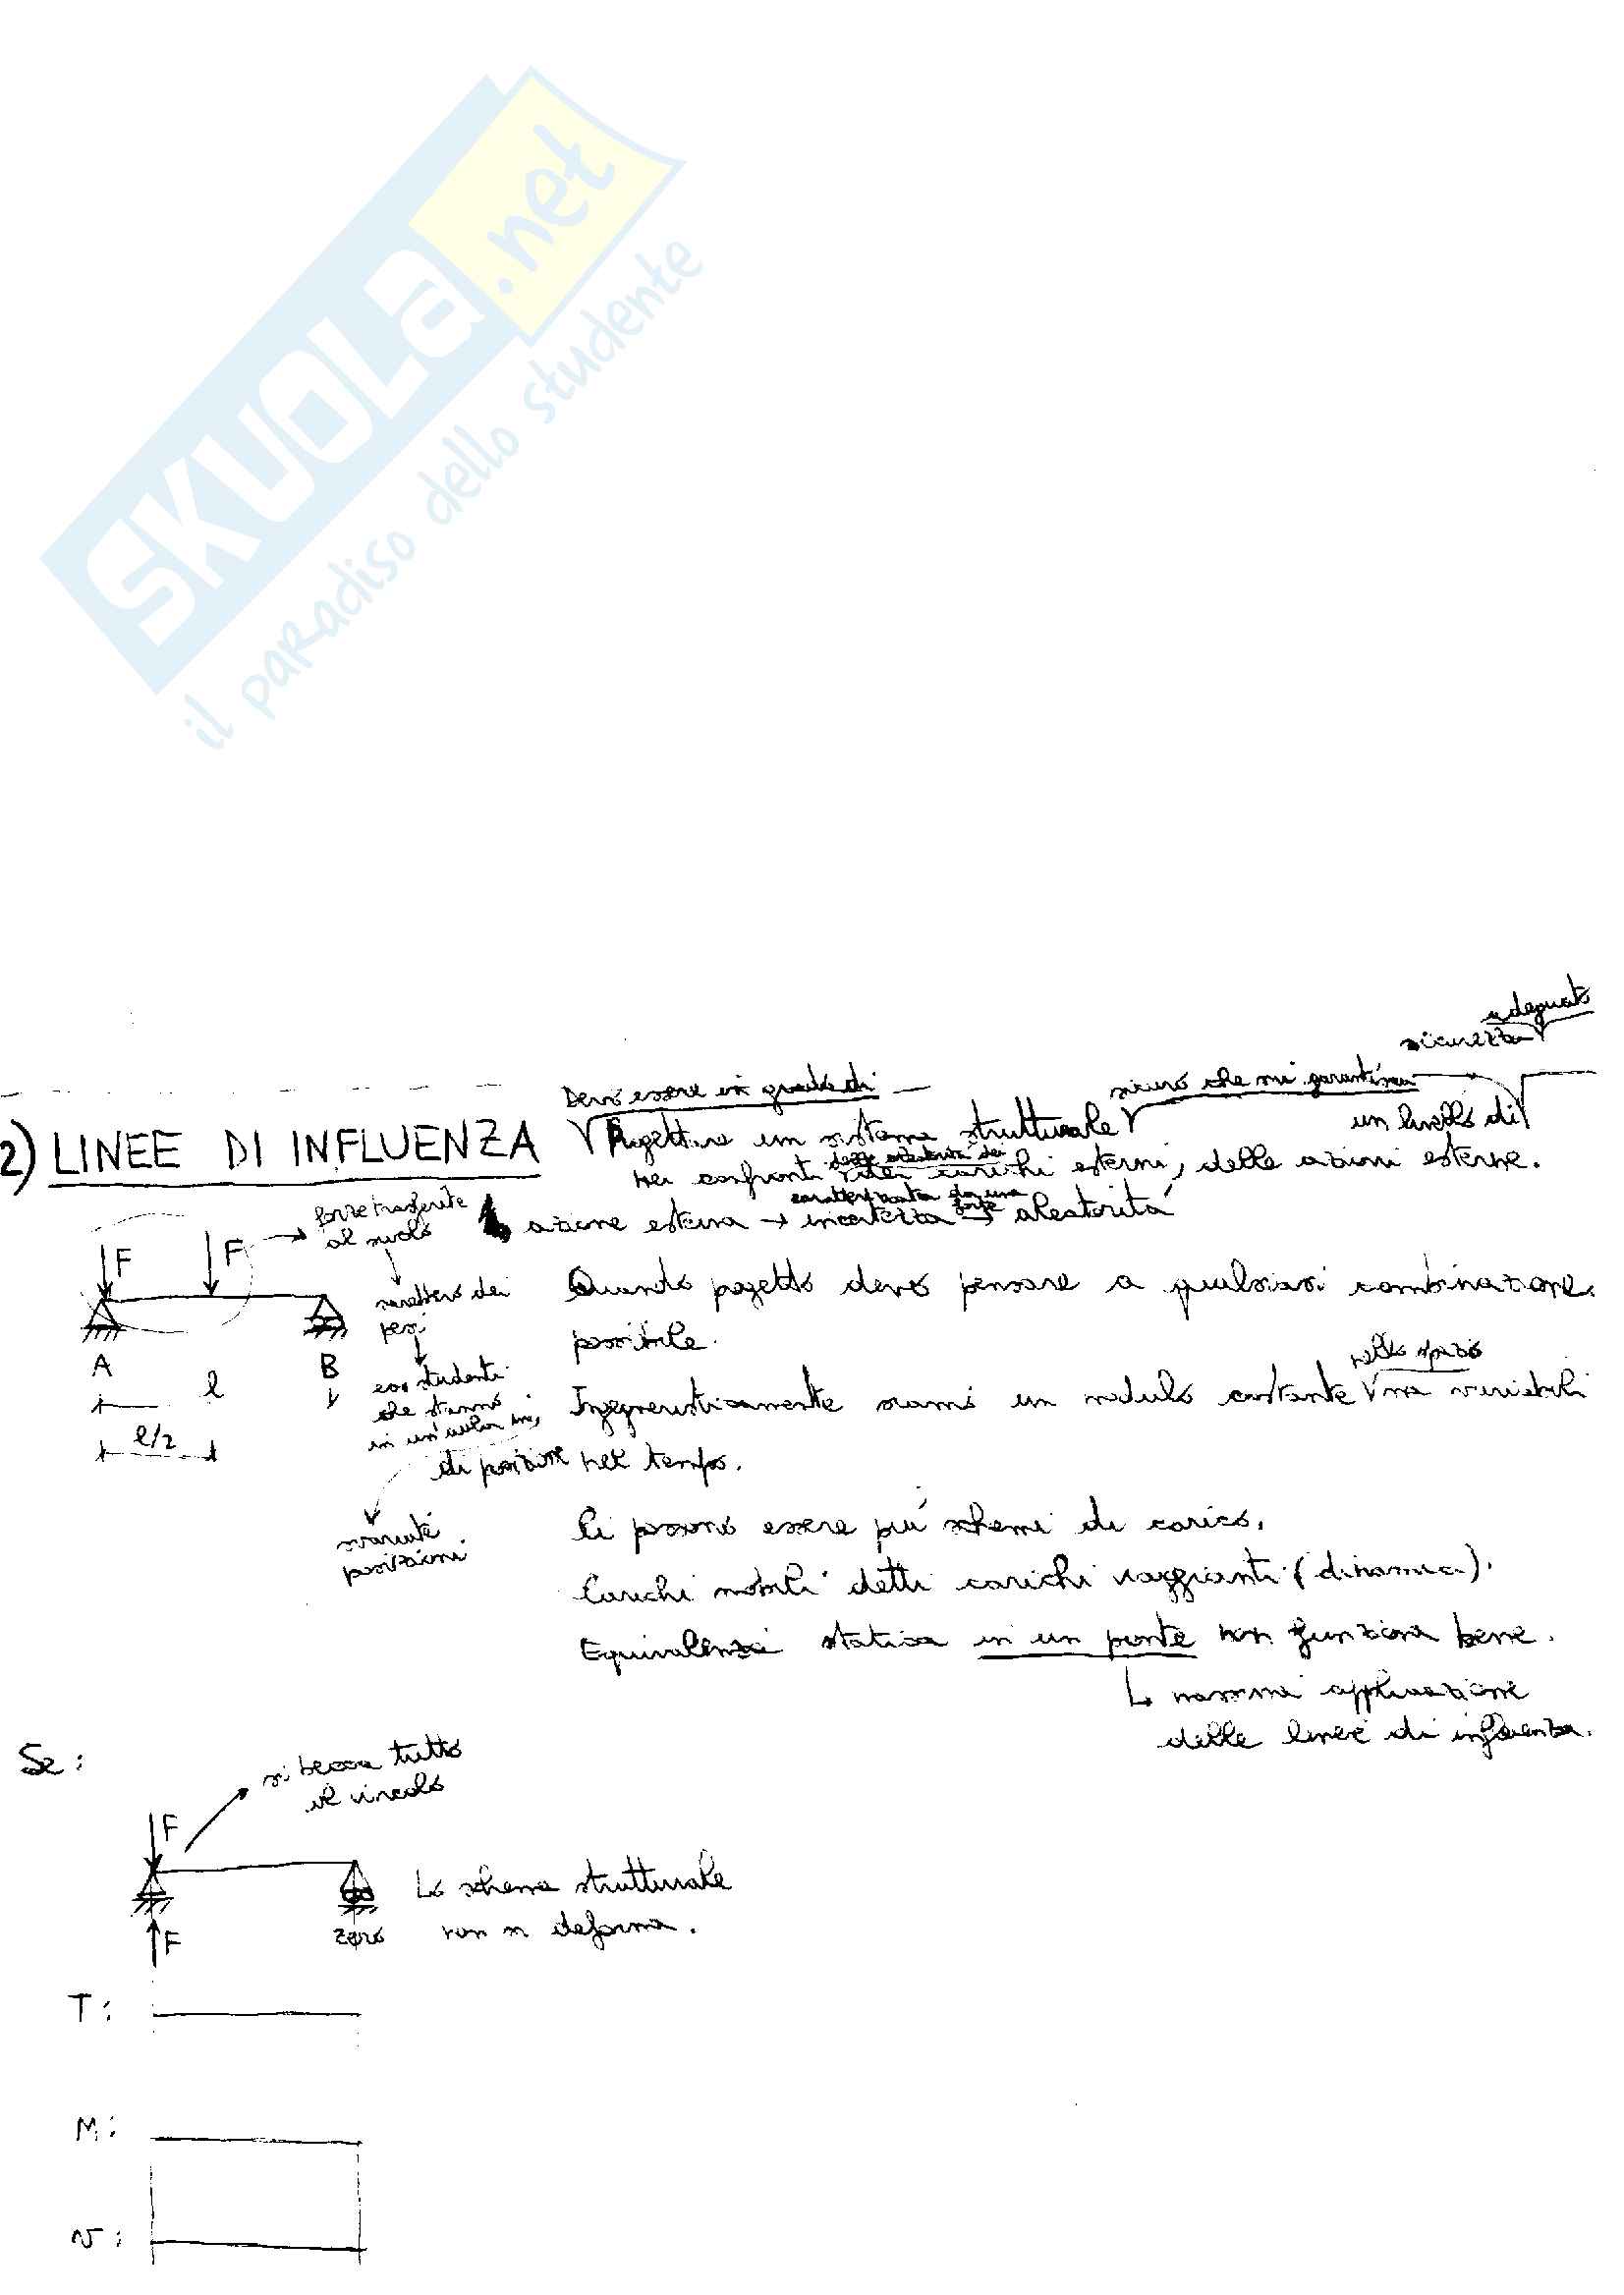 SKUOLA.net
il paradiso dello studente
adeguato
sicurezza
Devo essere in grado di
sicuro che mi garantisca
un livello di
2) LINEE DI INFLUENZA
Progettare un sistema strutturale
delle aleatorietà dei
nei confronti dei carichi esterni, delle azioni esterne.
caratterizzata da una forte
azione esterna → incertezza → aleatorietà
forze trasferite
al suolo
F
F
Quando progetto devo pensare a qualsiasi combinazione
possibile.
dei
pesi
A
B
l
l/2
es. studenti
che stanno
in un'aula
nello spazio
Ingegneristicamente siamo un modulo costante ma variabili
di posizione nel tempo.
svariate
posizioni
Ci possono essere più schemi di carico.
Carichi mobili detti carichi viaggianti (dinamica).
Equivalenza statica in un ponte non funziona bene.
↳ massima applicazione
delle linee di influenza.
Se:
si becca tutto
il vincolo
F
Lo schema strutturale
non si deforma.
F
zero
T:
M:
N: